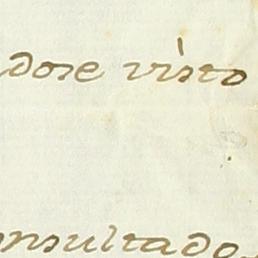 dose visto
onsultado